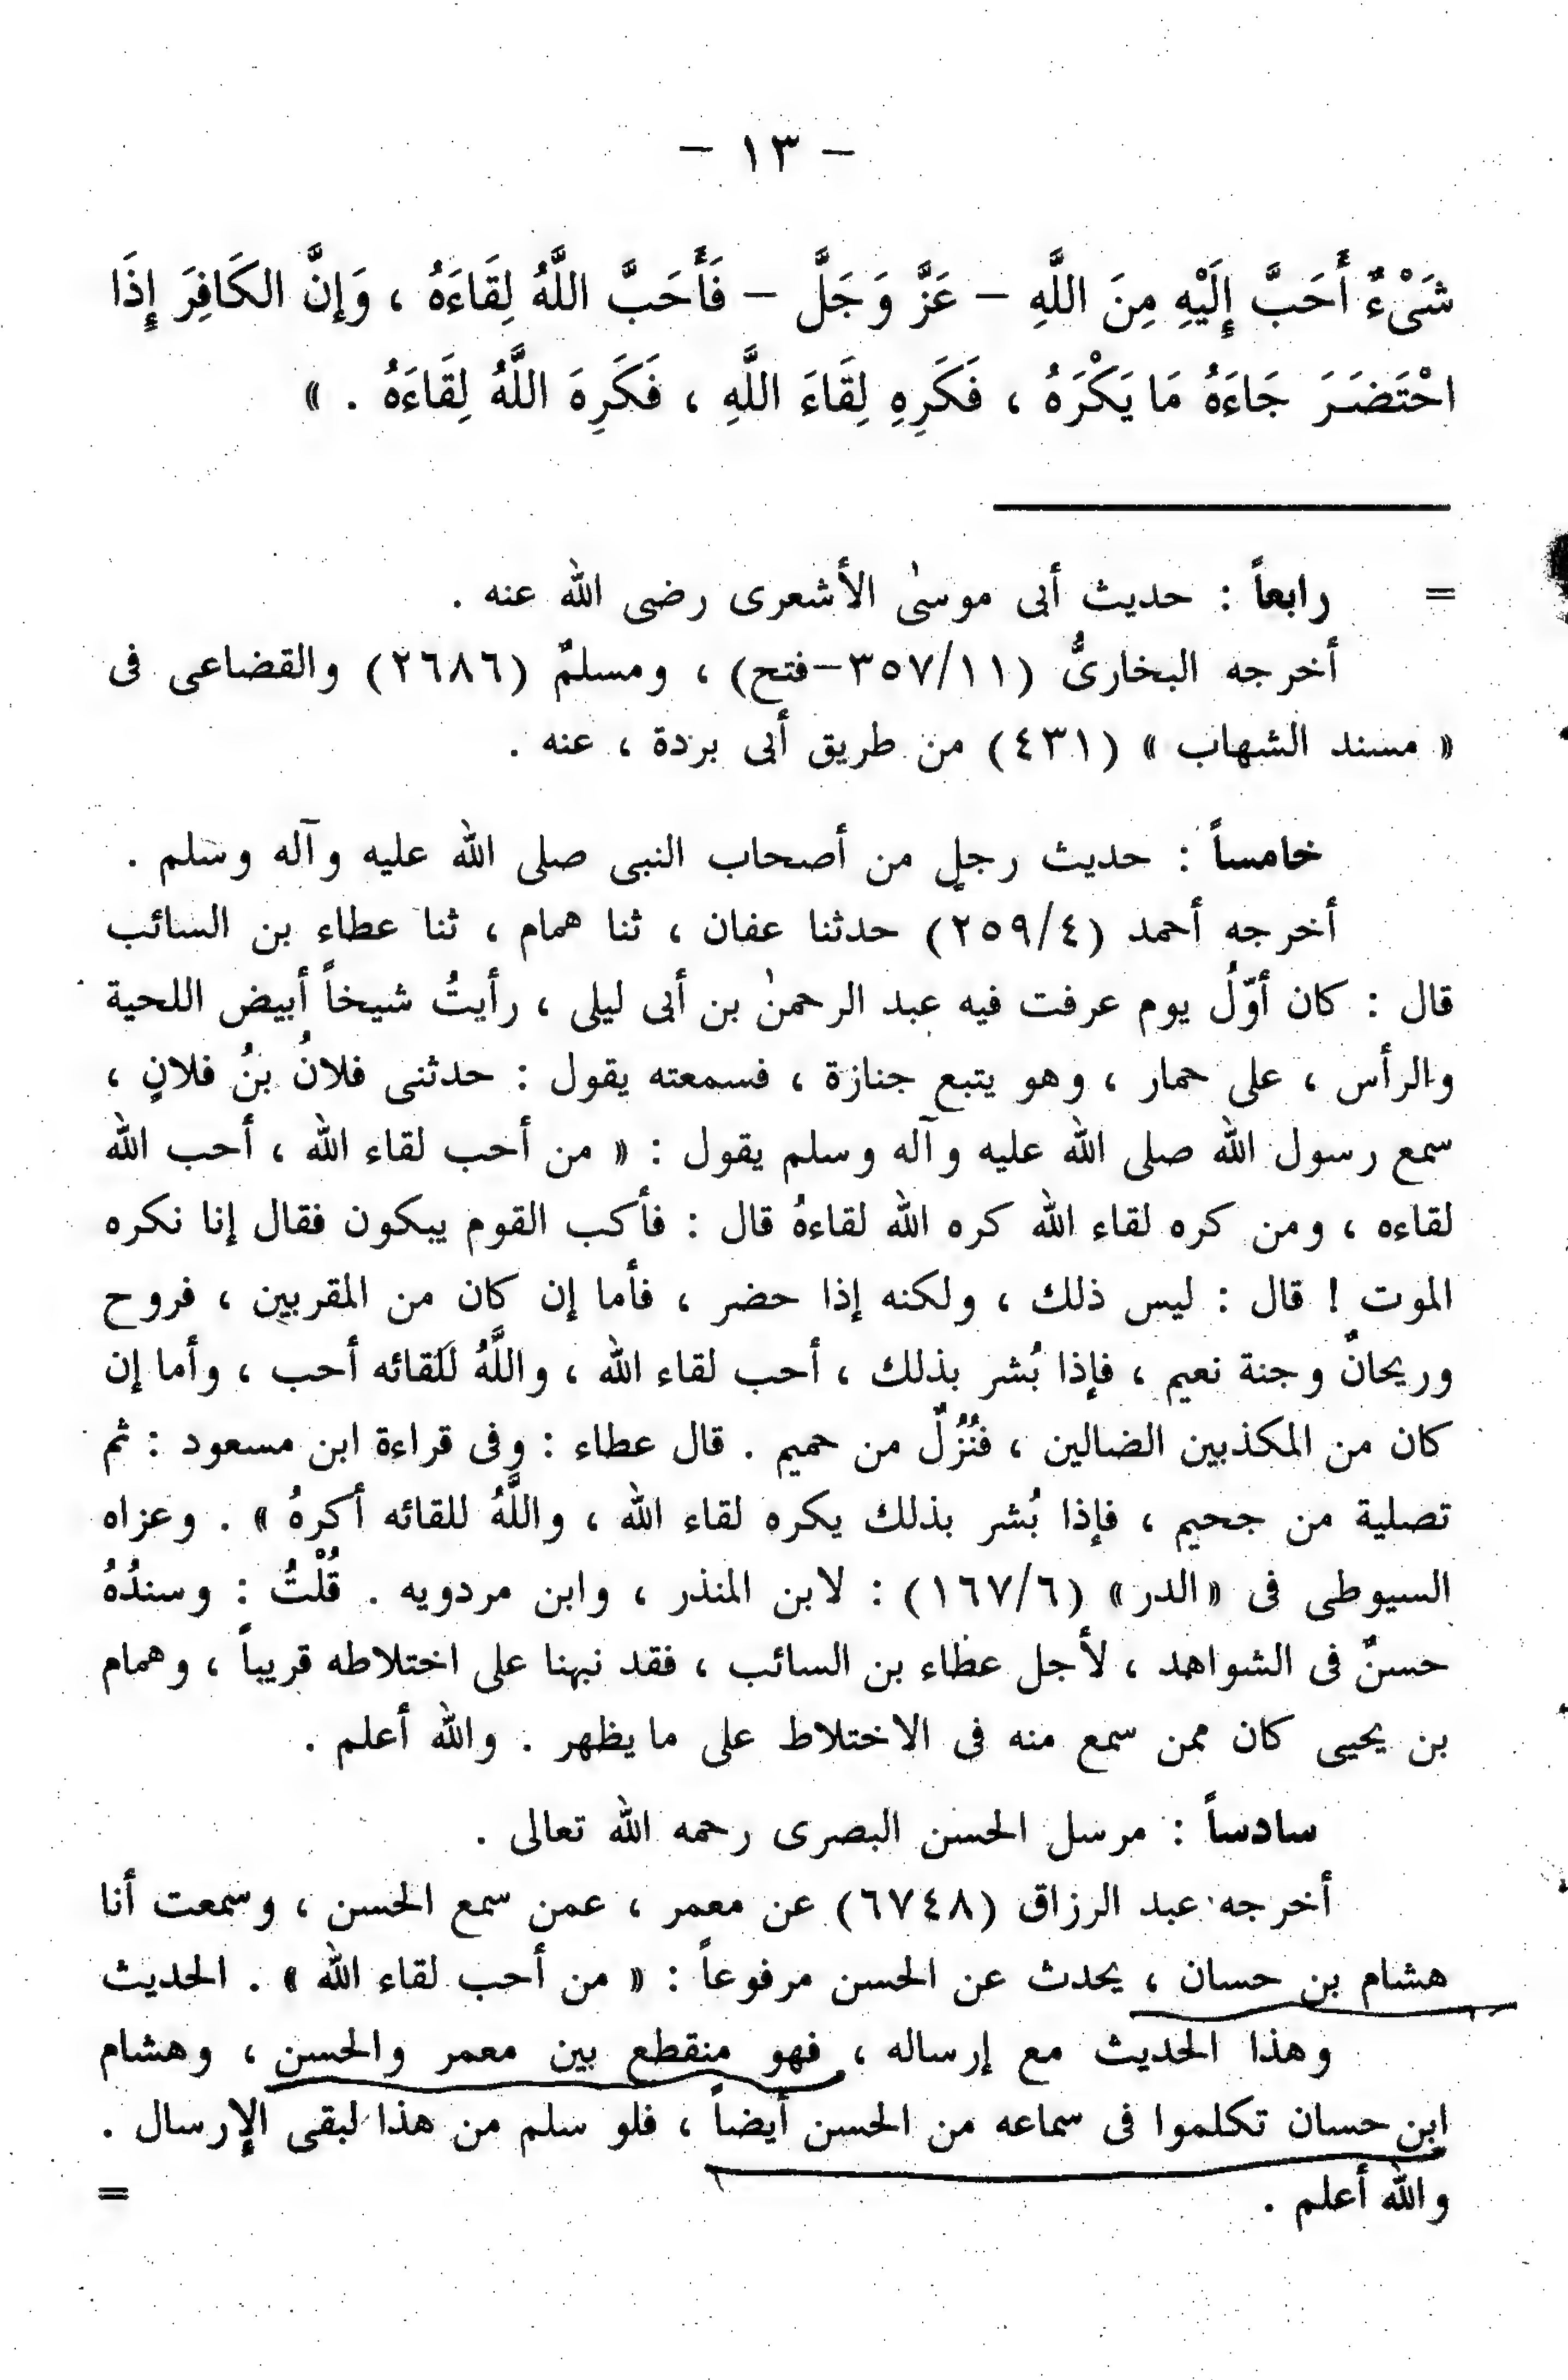 – ١٣ –
شَىْءٌ أَحَبَّ إِلَيْهِ مِنَ اللَّهِ – عَزَّ وَجَلَّ – فَأَحَبَّ اللَّهُ لِقَاءَهُ ، وَإِنَّ الكَافِرَ إِذَا
احْتَضَرَ جَاءَهُ مَا يَكْرَهُ ، فَكَرِهِ لِقَاءَ اللَّهِ ، فَكَرِهَ اللَّهُ لِقَاءَهُ . »
= رابعاً : حديث أبى موسىٰ الأشعرى رضى الله عنه .
أخرجه البخارىُّ (١١/٣٥٧–فتح) ، ومسلمٌ (٢٦٨٦) والقضاعى فى
« مسند الشهاب » (٤٣١) من طريق أبى بردة ، عنه .
خامساً : حديث رجلٍ من أصحاب النبى صلى الله عليه وآله وسلم .
أخرجه أحمد (٤/٢٥٩) حدثنا عفان ، ثنا همام ، ثنا عطاء بن السائب
قال : كان أوّلُ يوم عرفت فيه عبد الرحمنٰ بن أبى ليلى ، رأيتُ شيخاً أبيض اللحية
والرأس ، على حمار ، وهو يتبع جنازة ، فسمعته يقول : حدثنى فلانُ بنُ فلانٍ ،
سمع رسول الله صلى الله عليه وآله وسلم يقول : « من أحب لقاء الله ، أحب الله
لقاءه ، ومن كره لقاء الله كره الله لقاءهُ قال : فأكب القوم يبكون فقال إنا نكره
الموت ! قال : ليس ذلك ، ولكنه إذا حضر ، فأما إن كان من المقربين ، فروح
وريحانٌ وجنة نعيم ، فإذا بُشر بذلك ، أحب لقاء الله ، واللَّهُ لَلقائه أحب ، وأما إن
كان من المكذبين الضالين ، فنُزُلٌ من حميم . قال عطاء : وفى قراءة ابن مسعود : ثم
تصلية من جحيم ، فإذا بُشر بذلك يكره لقاء الله ، واللَّهُ للقائه أكرهُ » . وعزاه
السيوطى فى «الدر» (٦/١٦٧) : لابن المنذر ، وابن مردويه . قُلْتُ : وسندُهُ
حسنٌ فى الشواهد ، لأجل عطاء بن السائب ، فقد نبهنا على اختلاطه قريباً ، وهمام
بن يحيى كان ممن سمع منه فى الاختلاط على ما يظهر . والله أعلم .
سادساً : مرسل الحسن البصرى رحمه الله تعالى .
أخرجه عبد الرزاق (٦٧٤٨) عن معمر ، عمن سمع الحسن ، وسمعت أنا
هشام بن حسان ، يحدث عن الحسن مرفوعاً : « من أحب لقاء الله » . الحديث
وهذا الحديث مع إرساله ، فهو منقطع بين معمر والحسن ، وهشام
ابن حسان تكلموا فى سماعه من الحسن أيضاً ، فلو سلم من هذا لبقى الإرسال .
والله أعلم . =